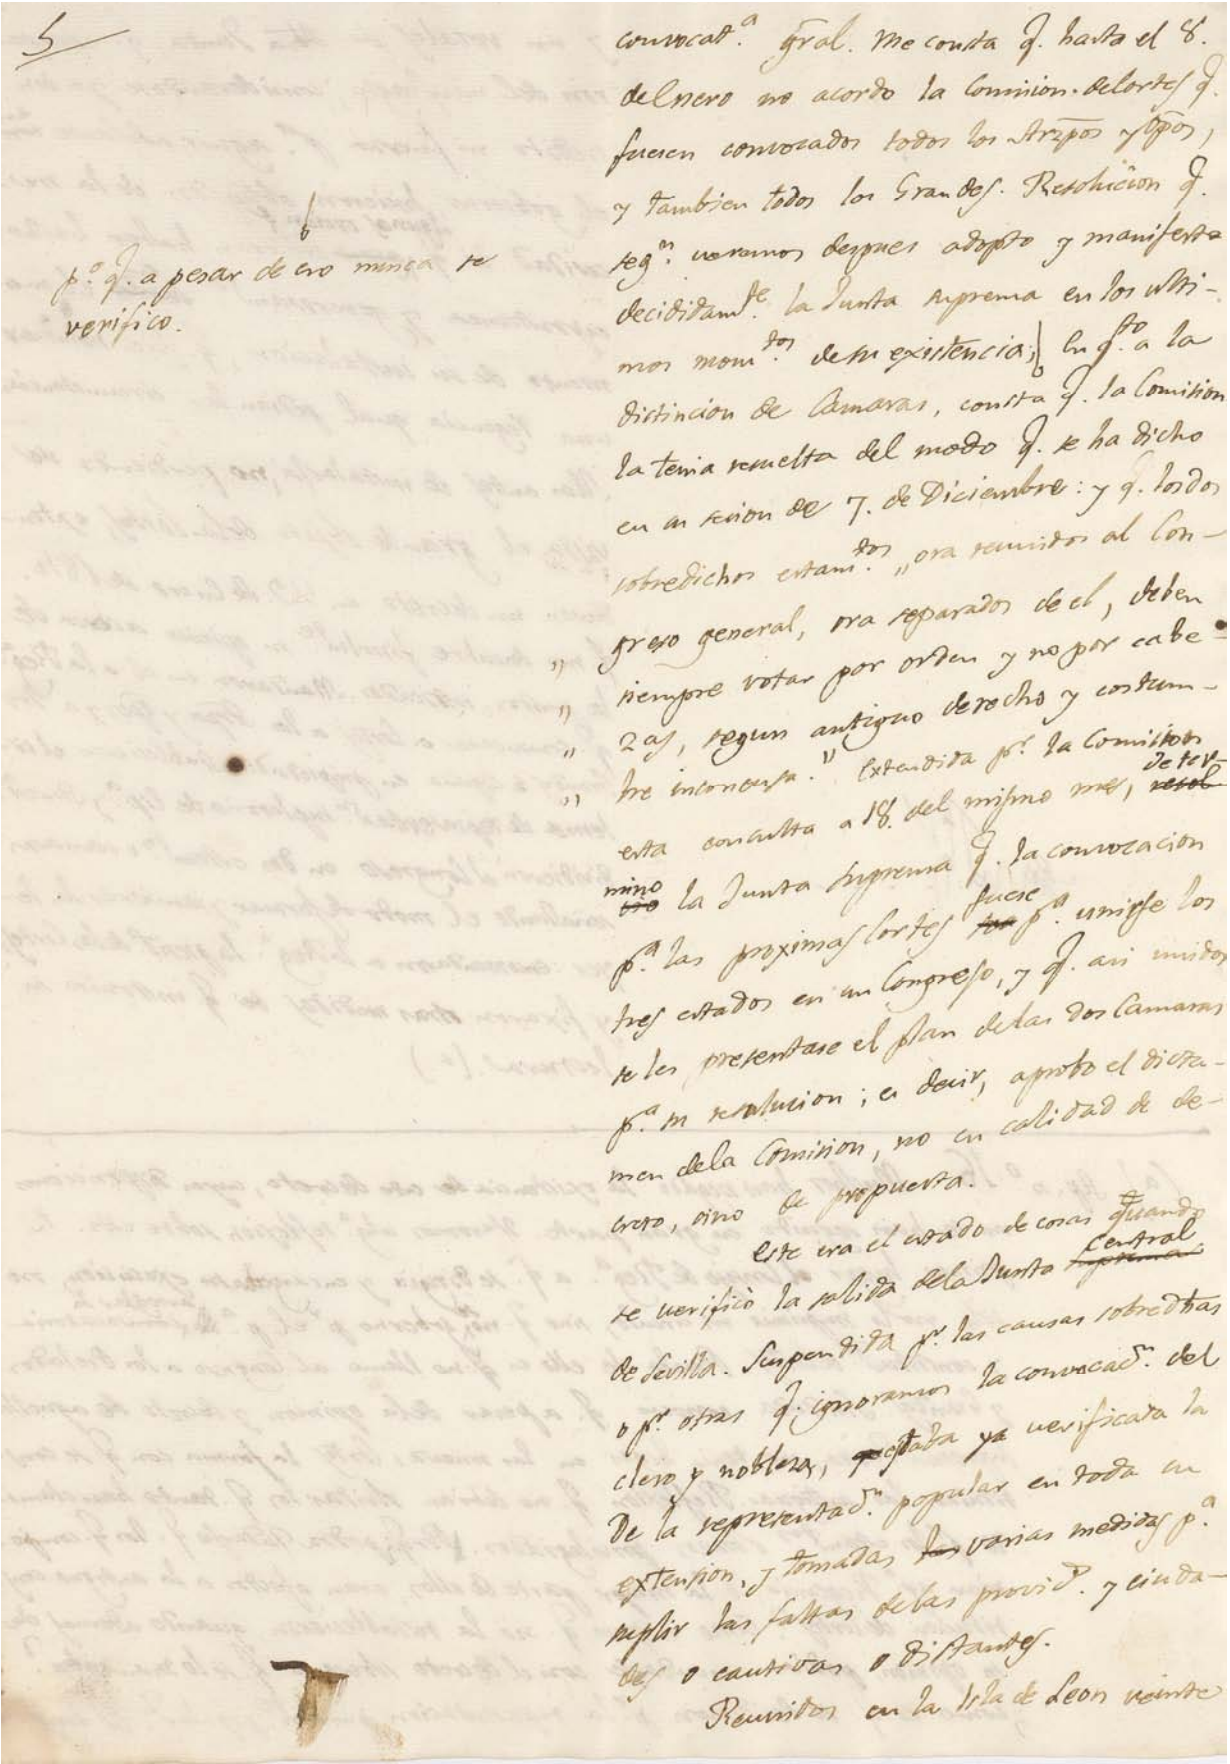 5
convocat.ª gral. Me consta q. hasta el 8.
de Enero no acordo la Comision de Cortes q.
fuesen convocados todos los Arzpos y Opos,
y tambien todos los Grandes. Resolucion q.
seg.n veremos despues adopto y manifesto
decididam.te la Junta suprema en los ulti-
mos mom.tos de su existencia; En q.to a la
distincion de Camaras, consta q. la Comision
la tenia resuelta del modo q. se ha dicho
en su sesion de 7. de Diciembre: y q. los dos
sobredichos estam.tos „ ora reunidos al Con-
„ greso general, ora separados de el, deben
„ siempre votar por orden y no por cabe-
„ zas, segun antiguo derecho y costum-
„ bre inconcusa." Extendida p.r la Comision
esta consulta a 18. del mismo mes, resol deter-
vio mino la Junta suprema q. la convocacion
p.ª las proximas Cortes fuese p.ª unirse los
tres estados en un Congreso, y q. asi unidos
se les presentase el plan de las dos Camaras
p.ª su resolucion; es decir, aprobo el dicta-
men de la Comision, no en calidad de de-
creto, sino de propuesta.
Este era el estado de cosas quando
se verificò la salida de la Junta suprema central
de Sevilla. Suspendida p.r las causas sobredhas
o p.r otras q. ignoramos la convocac.n del
clero y nobleza, estaba ya verificada la
De la representac.n popular en toda su
extension, y tomadas las varias medidas p.ª
suplir las faltas de las provi.s y ciuda-
des o cautivas o distantes.
Reunidos en la Isla de Leon veinte
p.º q. a pesar de eso nunca se
verifico.